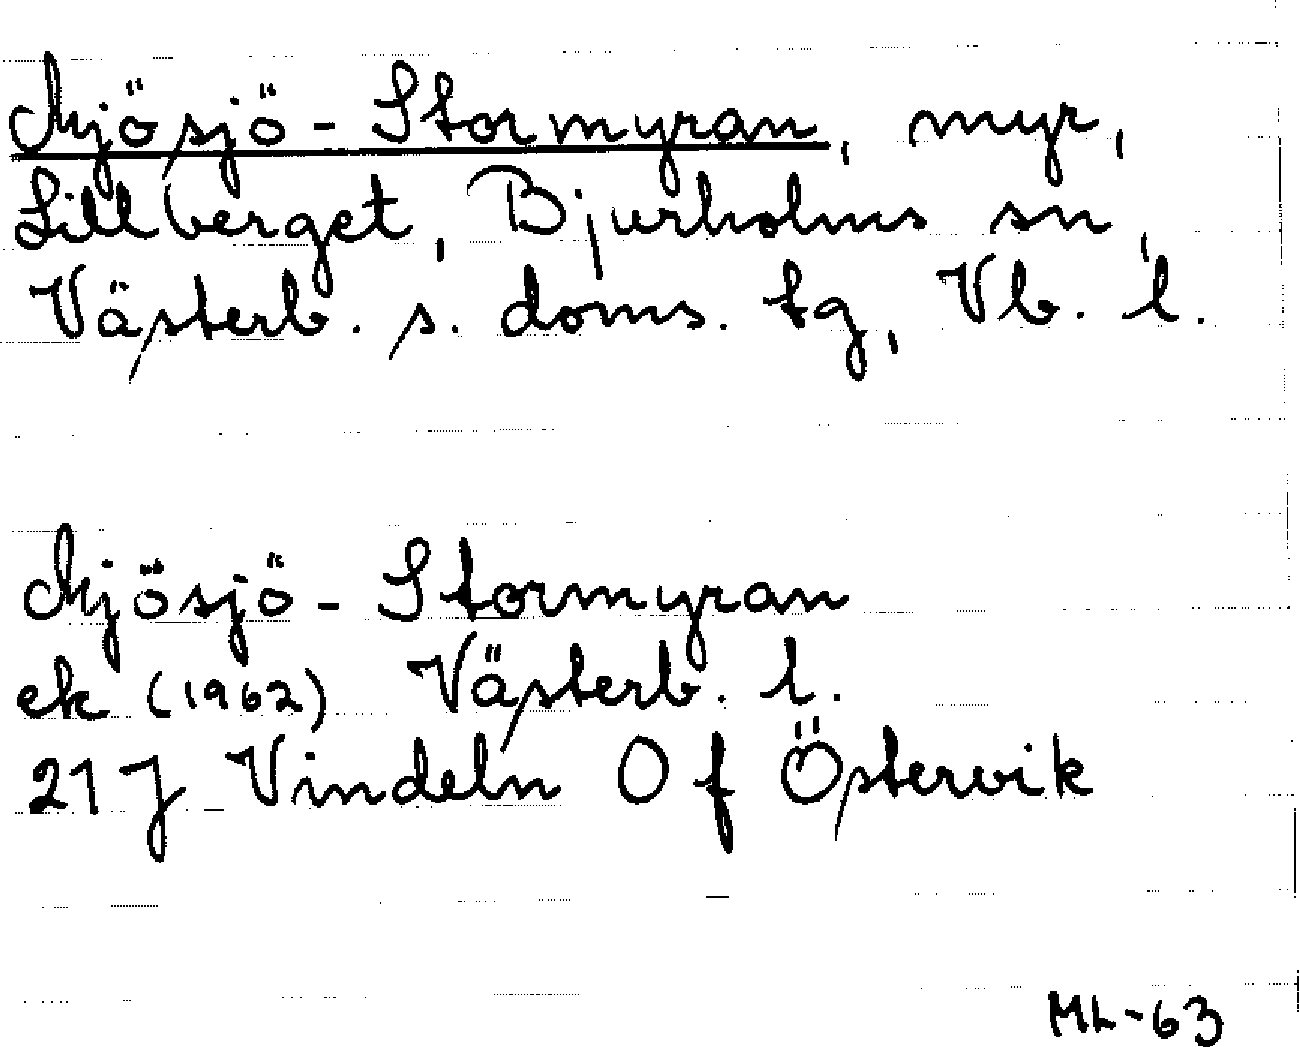 Mjösjö - Stormyran, myr,
Lillberget, Bjurholms sn,
Västerb. s. doms. tg, Vb. l.
Mjösjö - Stormyran
ek (1962) Västerb. l.
21J Vindeln 0f Östervik
ML-63